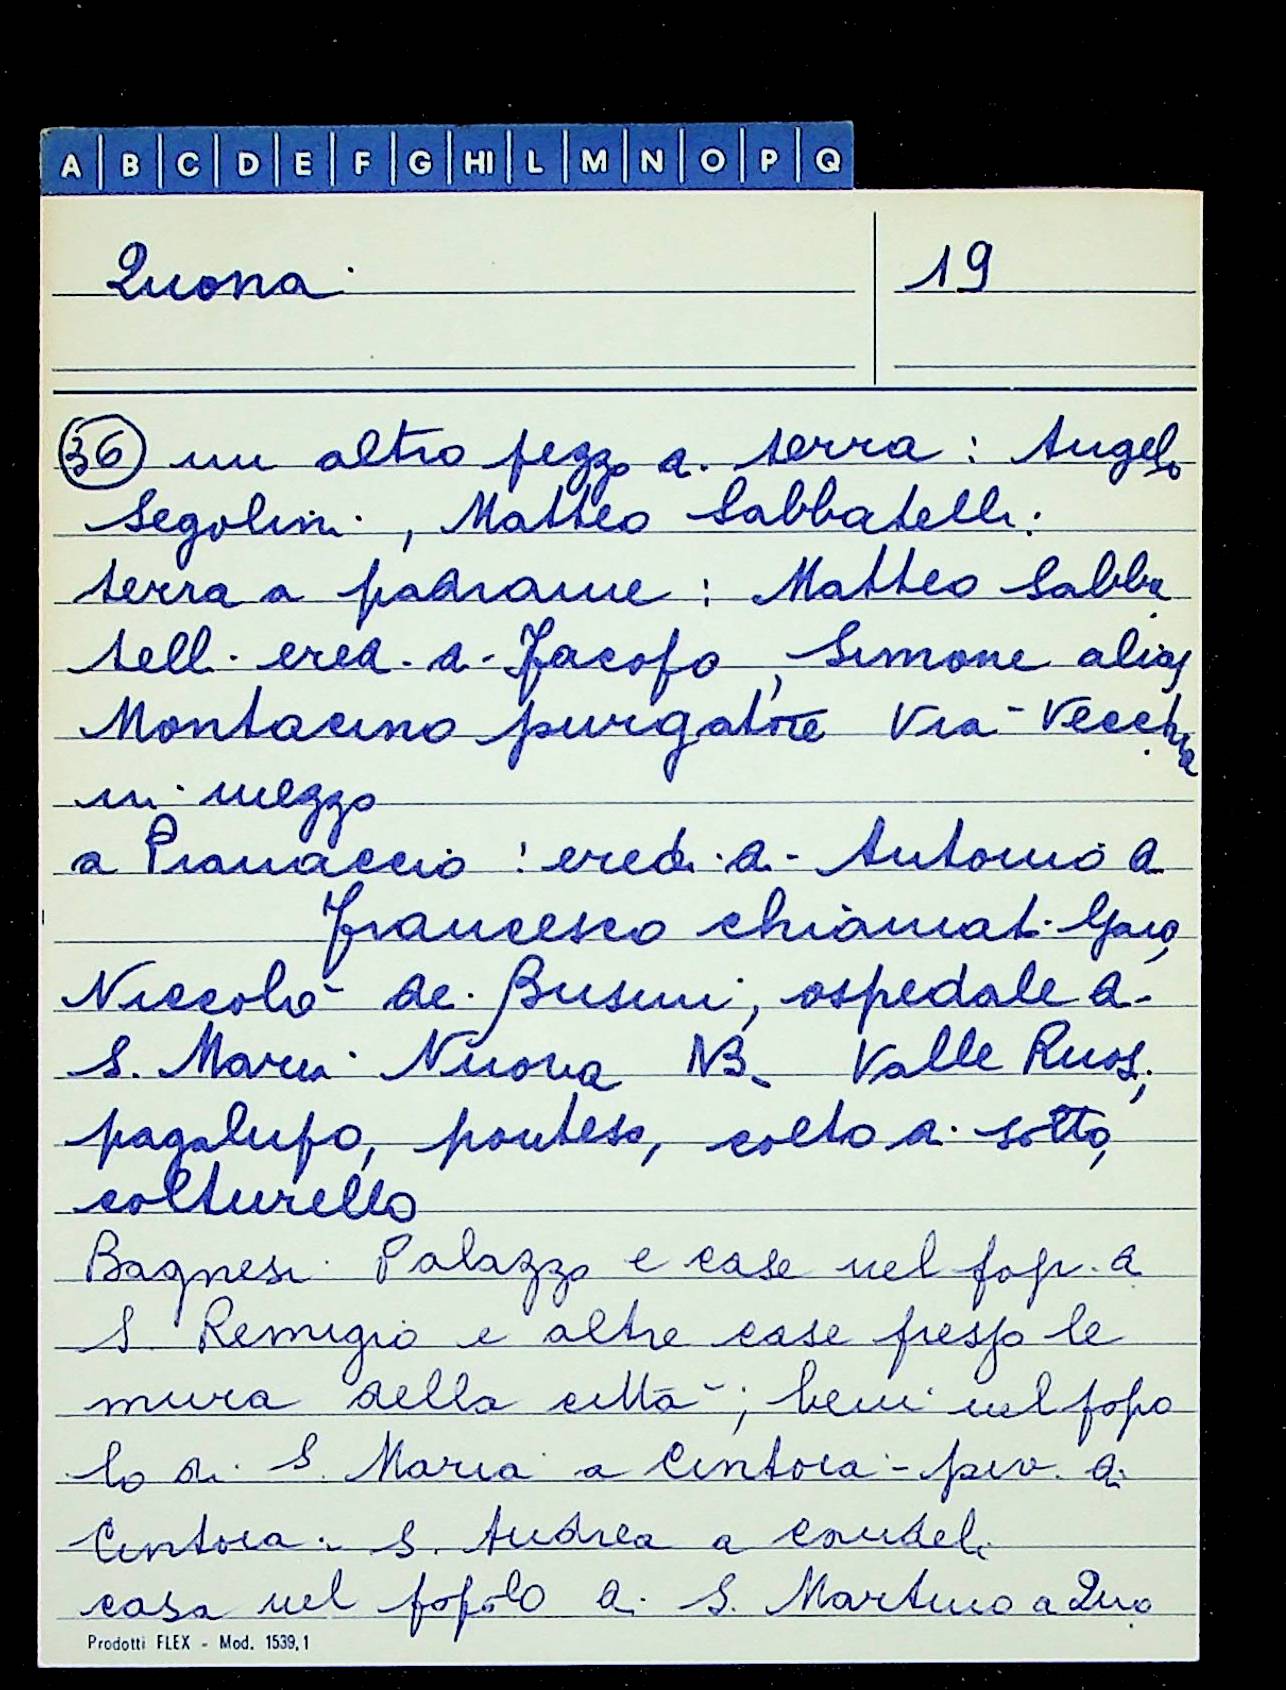 A B C D E F G HI L M N O P Q
Quona
19
36 un altro pezzo di terra : Angelo
Segolini, Matteo Sabbatelli.
terra a padrame : Matteo Sabba
telli eredi di Jacopo, Simone alias
Montacino purgatore Via Vecchia
in mezzo
a Pianaccio : eredi di Antonio di
Francesco chiamati
Niccolò de Busini, ospedale di
S. Maria Nuova NB. Valle Ruos,
pagalupo, pontese, colto di sotto,
colturello
Bagnesi Palazzo e case nel pop. di
S. Remigio e altre case presso le
mura della città; beni nel popo
lo di S. Maria a Cintoia - piv. di
Cintoia. S. Andrea a Candeli
casa nel popolo di S. Martino a Quo
Prodotti FLEX - Mod. 1539,1